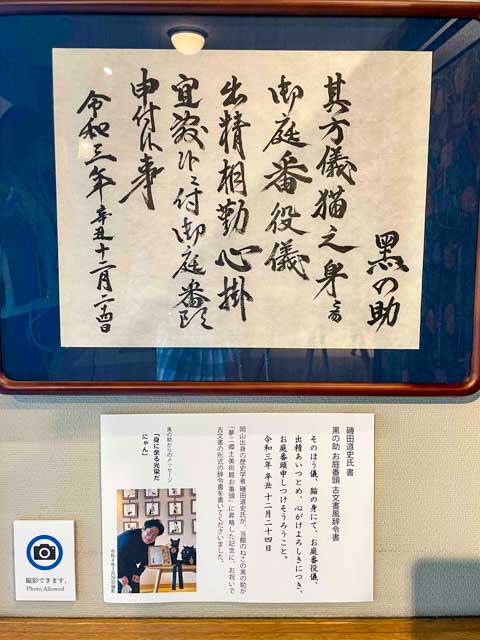 黒の助
其方儀猫之身ニ而
御庭番役儀
出精相勤心掛
宜敷ニ付御庭番頭
申付候事
令和三年辛丑十二月二十四日
磯田道史氏 書
黒の助 お庭番頭 古文書風辞令書
そのほう儀、猫の身にて、お庭番役儀、
出精あいつとめ、心がけよろしきにつき、
お庭番頭申しつけそうろうこと。
令和三年 辛丑 十二月二十四日
岡山出身の歴史学者 磯田道史氏が、当館のねこの黒の助が
「夢二郷土美術館お庭番頭」に昇格した記念に、お祝いで
古文書の形式の辞令書を書いてくださいました。
黒の助からのメッセージ
「身に余る光栄だ
にゃん」
撮影できます。
Photo Allowed